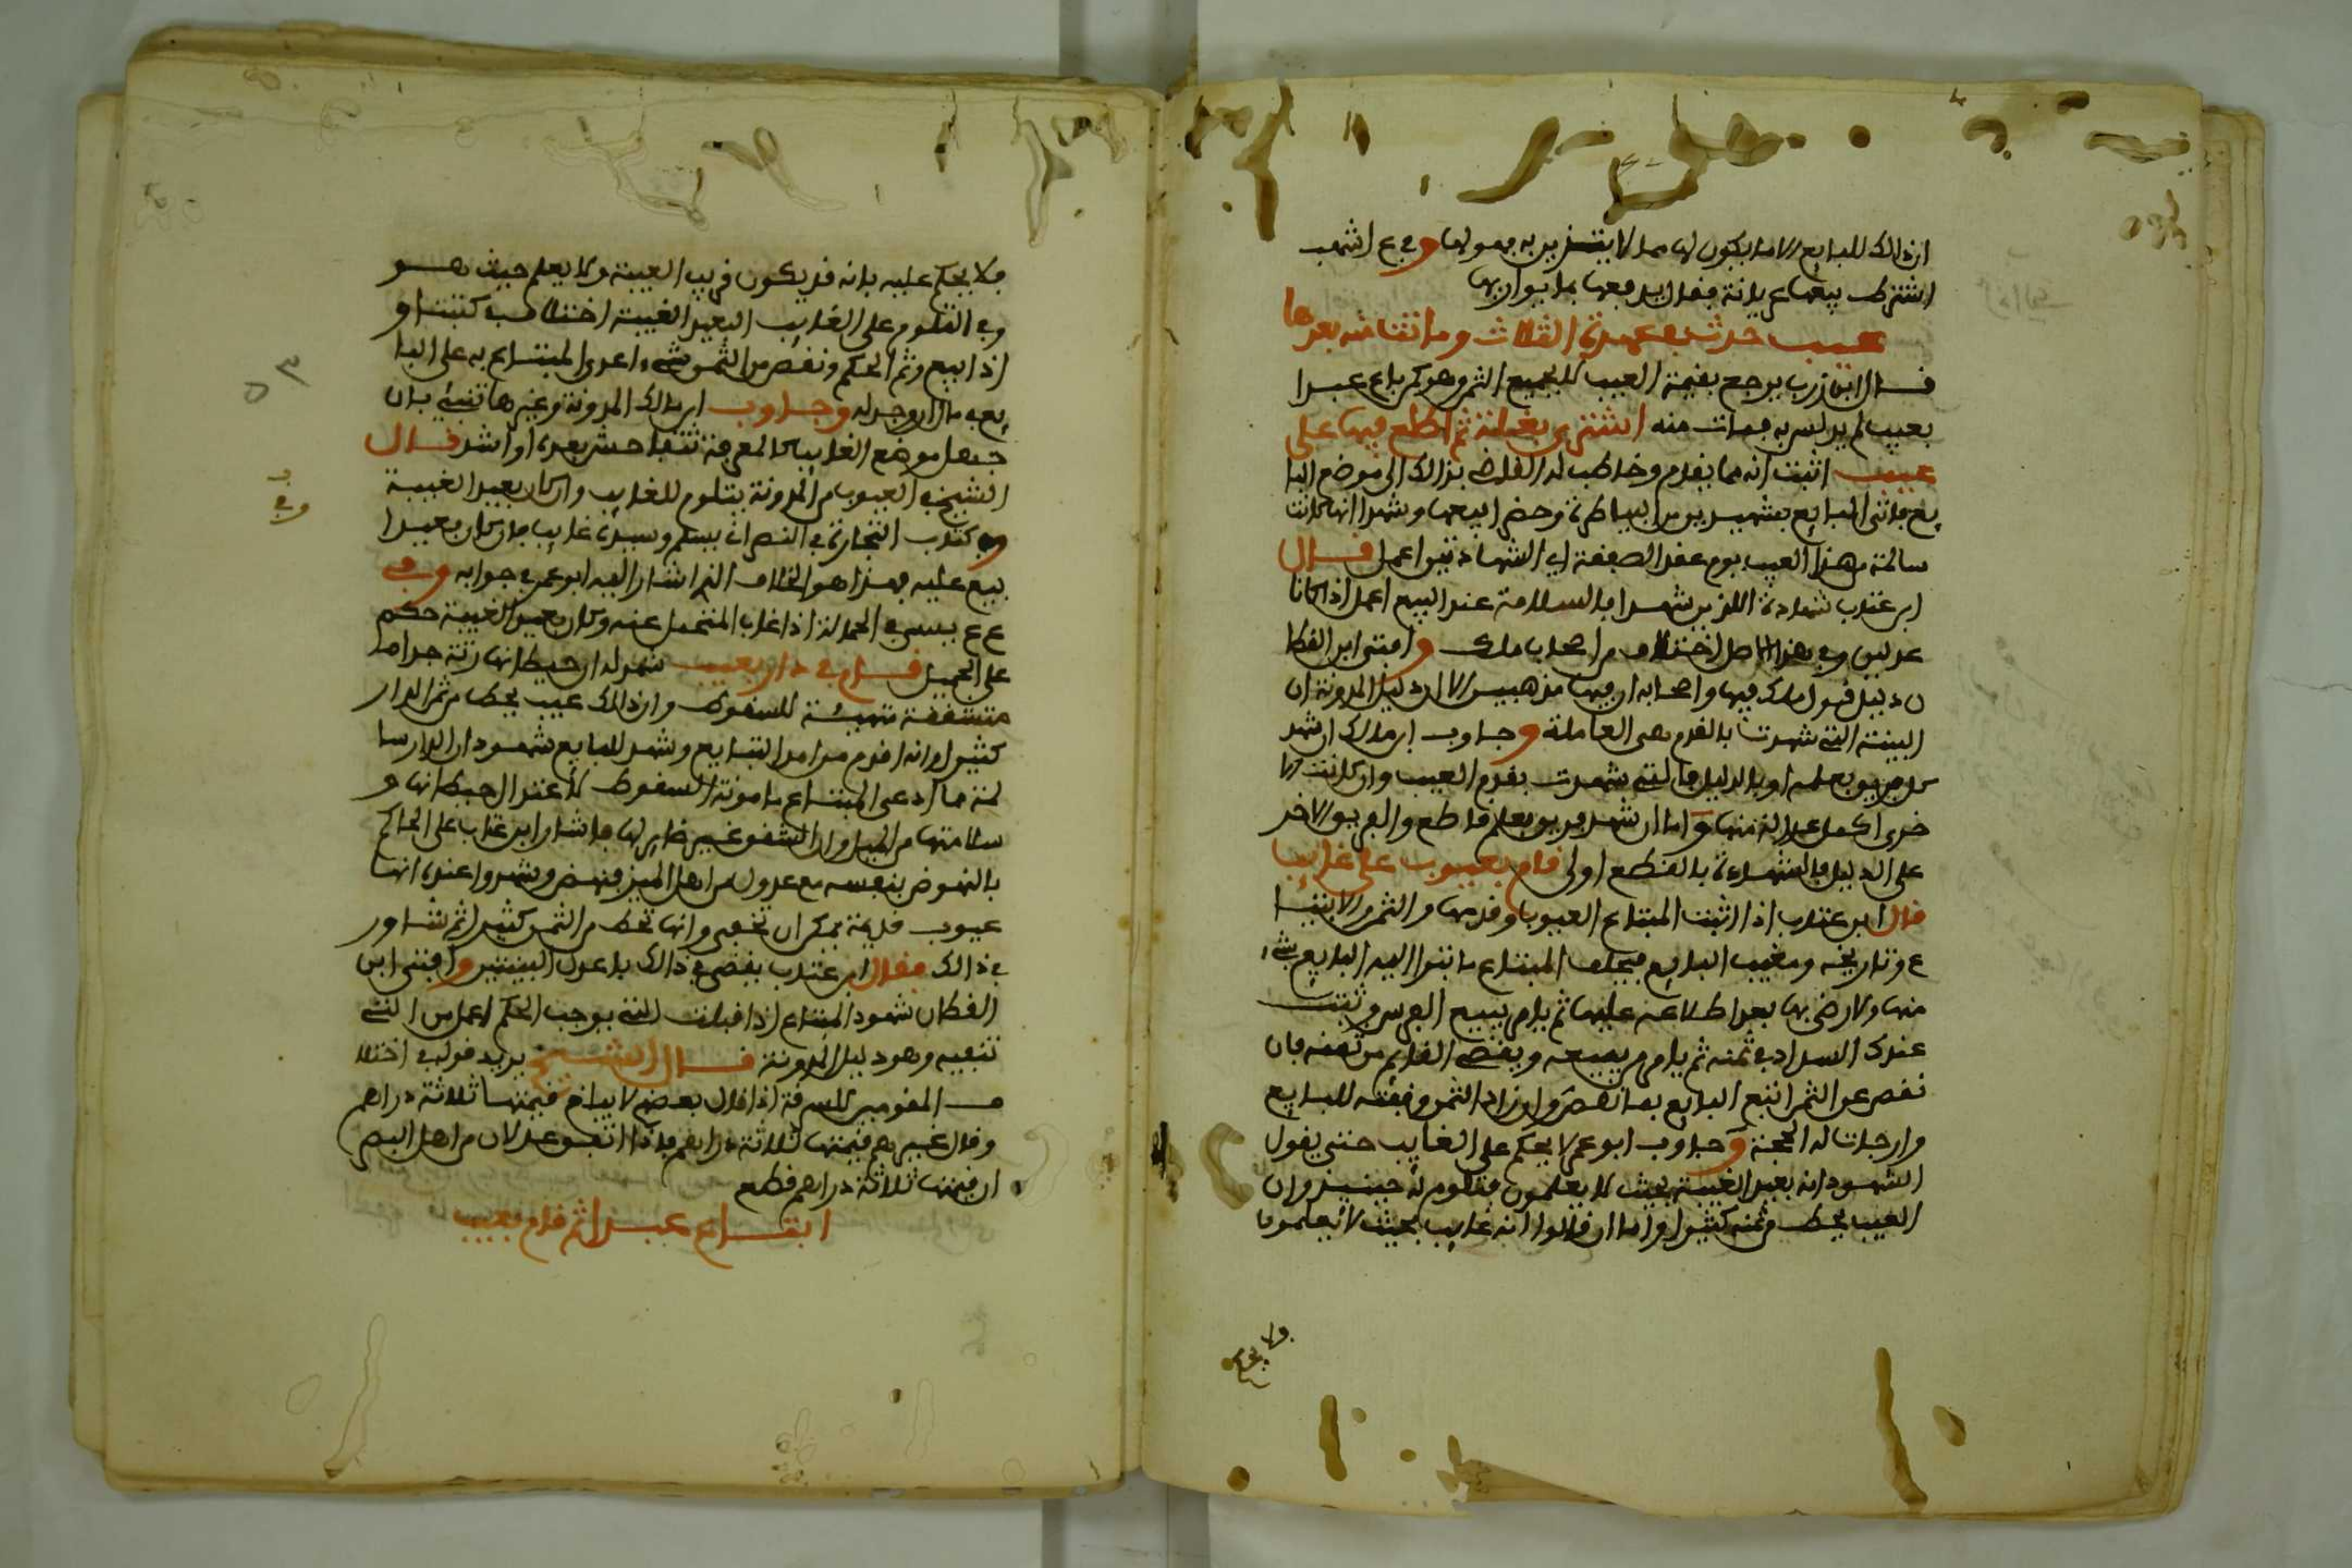 ان ذالك للبايع الا ما يكون لها مما لا يتزين به فهو لها وفي ع اشهب
اشترط بيعها عريانة فقال يبيعها بما يواريها
عيب حدث في عهدة الثلاث وما تناشه بعدها
قال ابن زرب يرجع بقيمة العيب لا بجميع الثمن وهو كمن باع عبدا
بعيب لم يدلس به فمات منه اشترى بغلة ثم اطلع فيها على
عيب اثبت انه مما يقدم وخاطب له القاضي بذالك الى موضع البا
يع فاتى البايع بشهيدين من البياطرة وحضرا بيعها وشهدا انها كانت
سالمة من هذا العيب يوم عقد الصفقة اي الشهادتين اعمل قال
ابن عتاب شهادة اللذين شهدا بالسلامة عند البيع اعمل اذا كانا
عدلين وفي هذا الاصل اختلاف من اصحاب مالك وافتى ابن القطا
ن دليل قول مالك فيها واصحابه ان فيها مذهبين الا ان دليل المدونة ان
البينة التي شهدت بالقدم هي العاملة وجاوب ابن مالك ان شهد
كل فريق بعلمه او بالدليل فالتي شهدت بقدم العيب وان كانت الا
خرى اكمل عدالة منها واما ان شهد فريق بعلم قاطع والفريق الاخر
على الدليل فالشهادة بالقطع اولى قام بعيوب على غايب
قال ابن عتاب اذا اثبت المبتاع العيوب وقدمها والثمن والابتيا
ع وتاريخه ومغيب البايع فيحلف المبتاع ما تبرا اليه البايع بشيء
منها ولا رضي بها بعد اطلاعه عليها ثم يامر ببيع الفرس وتثبت
عندك السداد في ثمنه ثم يامر من يبيعه ويقضي القايم من ثمنه فان
نقص عن الثمن اتبع البايع بما نقص وان زاد الثمن وقفته للبايع
وارجات له الحجة وجاوب ابو عمر لا يحكم على الغايب حتى يقول
الشهود انه بعيد الغيبة بحيث لا يعلمون فتلوم له حينيذ وان
العيب يحط من ثمنه كثيرا واما ان قالوا انه غايب بحيث لا يعلمون
ولا يحكم
فلا يحكم عليه بانه قد يكون قريب الغيبة ولا يعلم حيث هو
وفي التلوم على الغايب البعيد الغيبة اختلاف كتبتا و
اذا بيع وتم الحكم ونقص من الثمن شيء اعدي المبتاع به على البا
يع في مال ان وجد له وجاوب ابن مالك المدونة وغيرها تنبئ بان
جهل موضع الغايب كالمعرفة بتباحش بعده او اشد قال
الشيخ في العيوب من المدونة يتلوم للغايب وان كان بعيد الغيبة
وفي كتاب التجارة في النصراني يسلم وسيده غايب فان كان بعيدا
بيع عليه فهذا هو الخلاف الذي اشار اليه ابو عمر في جوابه وفي
ع عيسى في الحمالة اذا غاب المتحمل عنه وكان بعيد الغيبة حكم
على الحميل قام في دار بعيب شهد له ان حيطانها رثة جدا ما
متشققة متهيئة للسقوط وان ذالك عيب يحط من ثمن الدار
كثيرا وانه اقدم من امد التبايع وشهد للبايع شهود ان الدار سا
لمة مما ادعى المبتاع مامونة السقوط لاعتدال حيطانها و
سلامتها من الميل وان الشقوق غير ضاير لها فاشار ابن عتاب على الحاكم
بالنهوض بنفسه مع عدول من اهل الميز فنهض وشهدوا عنده انها
عيوب قديمة يمكن ان تخفى وانها تحط من الثمن كثيرا ثم شاور
في ذالك فقال ابن عتاب يقضى في ذالك باعدل البينتين وافتى ابن
القطان شهود المبتاع اذا قبلت التي بوجب الحكم اعمل من التي
تنفيه وهو دليل المدونة قال الشيخ يريد قوله في اختلا
ف المقومين للسرقة اذا قال بعضهم لا يبلغ قيمتها ثلاثة دراهم
وقال غيرهم قيمتها ثلاثة دراهم فاذا اتفق عدلان من اهل البصر
ان قيمتها ثلاثة دراهم قطع
ابتاع عبدا ثم قام بعيب